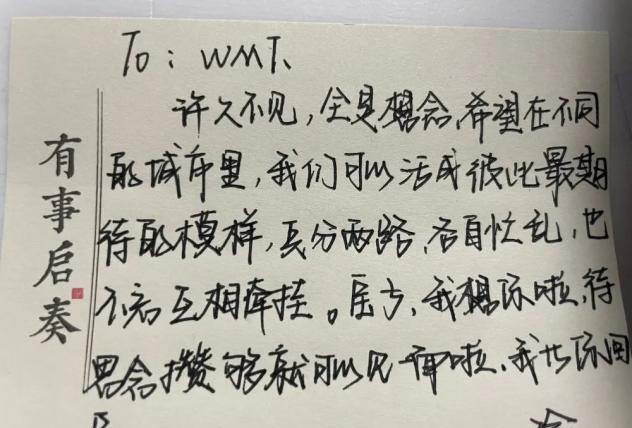 有事启奏
To: WMT、
许久不见,全是想念,希望在不同
的城市里,我们可以活成彼此最期
待的模样,兵分两路,各自忙乱,也
不忘互相牵挂。至于,我想你啦,待
思念攒够就可以见面啦、我与你